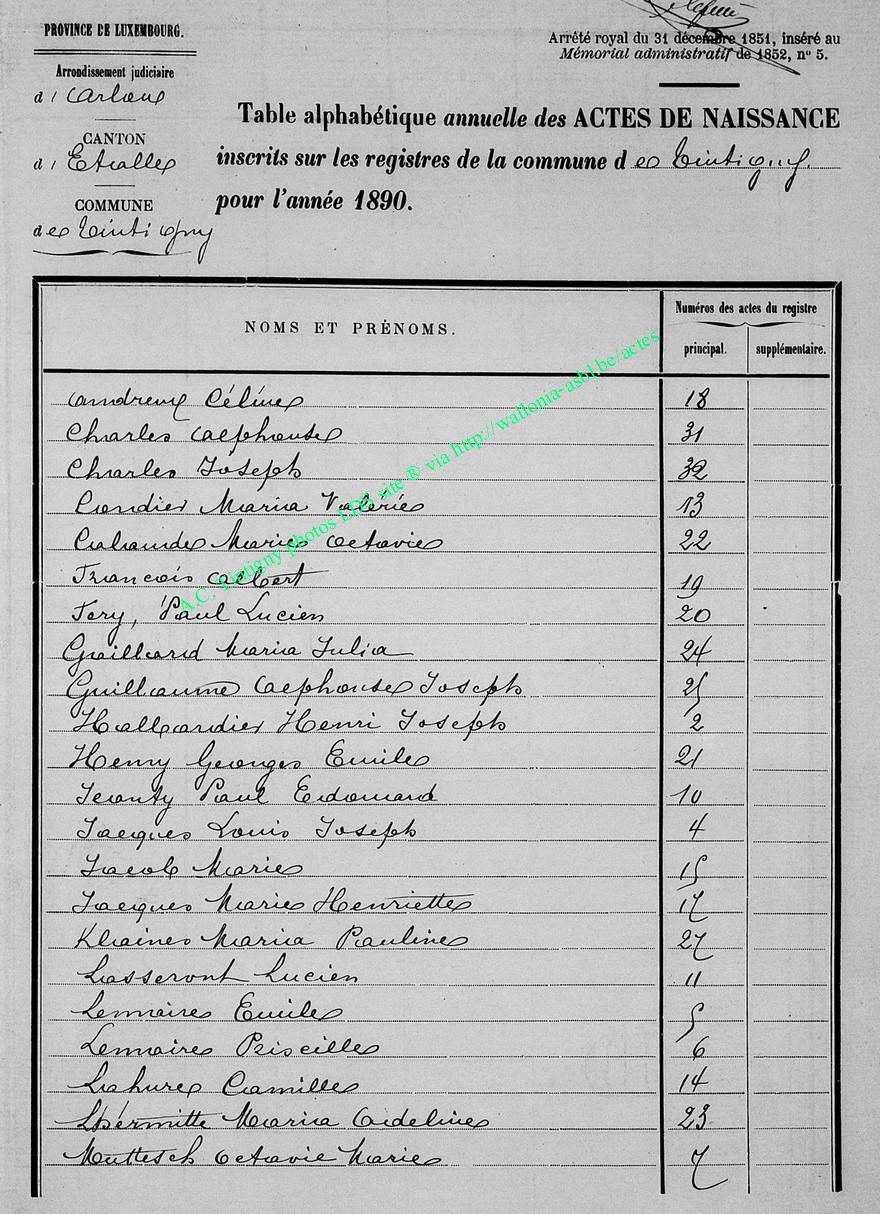 PROVINCE DE LUXEMBOURG.
Arrêté royal du 31 décembre 1851, inséré au
Mémorial administratif de 1852, nº 5.
Arrondissement judiciaire
d'Arlon
CANTON
d'Etalle
COMMUNE
de Tintigny
Table alphabétique annuelle des ACTES DE NAISSANCE
inscrits sur les registres de la commune de Tintigny
pour l'année 1890.
NOMS ET PRÉNOMS.
Numéros des actes du registre
principal. supplémentaire.
Andreux Céline 18
Charles Alphonse 31
Charles Joseph 32
Maria Valérie 13
Marie Octavie 22
François Albert 19
Fery, Paul Lucien 20
Gaillard Maria Julia 24
Guillaume Alphonse Joseph 25
Hallardier Henri Joseph 2
Henry Georges Emile 21
Jeanty Paul Edouard 10
Jacques Louis Joseph 4
Jacob Marie 15
Jacques Marie Henriette 17
Klaine Maria Pauline 27
Lasseront Lucien 11
Lemaire Emile 5
Lemaire Priscille 6
Lahure Camille 14
Lhermitte Maria Adeline 23
Muttesch Octavie Marie 7
A.C. Tintigny photos LDB site ® via http://wallonia-asbl.be/actes